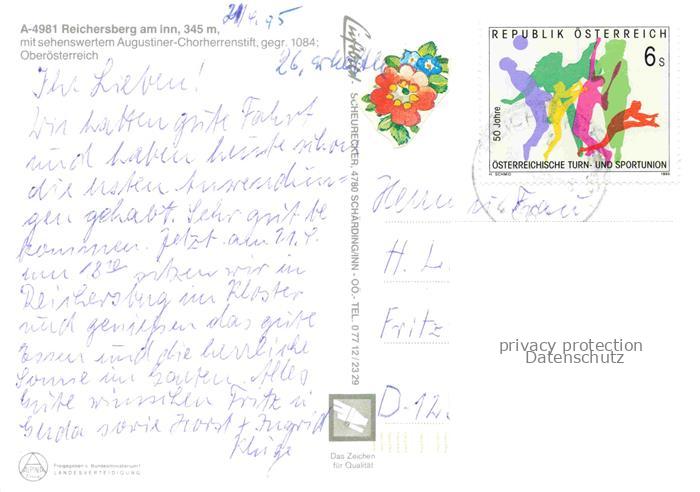 21/4.95
A-4981 Reichersberg am Inn, 345 m,
mit sehenswertem Augustiner-Chorherrenstift, gegr. 1084;
Oberösterreich
26.
Ihr Lieben!
Wir hatten gute Fahrt
und haben heute schon
die ersten Anwendun=
gen gehabt. Sehr gut be
kommen. Jetzt am 21.4.
um 18 sitzen wir in
Reichersberg im Kloster
und genießen das gute
Essen und die herrliche
Sonne im Garten. Alles
Gute wünschen Fritz u
Gerda sowie Horst + Ingrid
Kluge
ALPINA
Freigegeben v. Bundesministerium f.
LANDESVERTEIDIGUNG
SCHEURECKER, 4780 SCHÄRDING/INN - OÖ.- TEL. 0 77 12 / 23 29
Das Zeichen
für Qualität
REPUBLIK ÖSTERREICH
6 s
50 Jahre
ÖSTERREICHISCHE TURN- UND SPORTUNION
H. SCHMID 1995
Herrn u. Frau
H. L
Fritz
D-12
privacy protection
Datenschutz